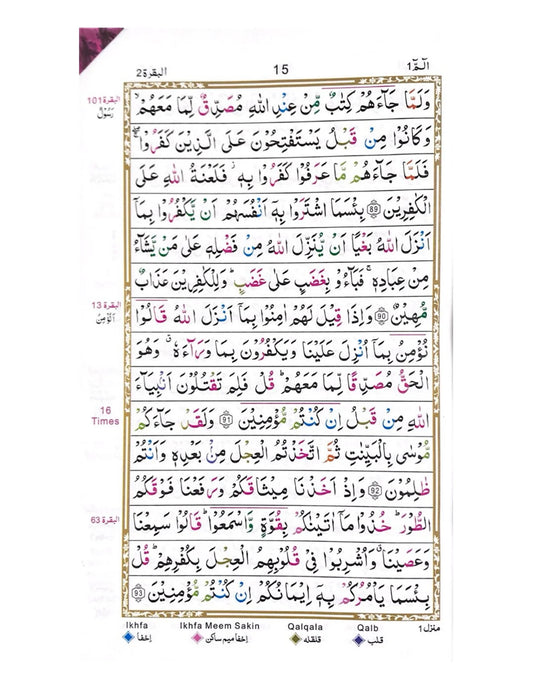 الٓمّٓ ١
15
البقرة ٢
وَلَمَّا جَآءَهُمۡ كِتٰبٌ مِّنۡ عِنۡدِ اللّٰهِ مُصَدِّقٌ لِّمَا مَعَهُمۡۙ
البقرة 101
رَسُوۡلٌ
وَكَانُوۡا مِنۡ قَبۡلُ يَسۡتَفۡتِحُوۡنَ عَلَى الَّذِيۡنَ كَفَرُوۡاۖۚ
فَلَمَّا جَآءَهُمۡ مَّا عَرَفُوۡا كَفَرُوۡا بِهٖ ۫ فَلَعۡنَةُ اللّٰهِ عَلَى
الۡكٰفِرِيۡنَ ﴿89﴾ بِئۡسَمَا اشۡتَرَوۡا بِهٖۤ اَنۡفُسَهُمۡ اَنۡ يَّكۡفُرُوۡا بِمَآ
اَنۡزَلَ اللّٰهُ بَغۡيًا اَنۡ يُّنَزِّلَ اللّٰهُ مِنۡ فَضۡلِهٖ عَلٰى مَنۡ يَّشَآءُ
مِنۡ عِبَادِهٖۚ فَبَآءُوۡ بِغَضَبٍ عَلٰى غَضَبٍؕ وَلِلۡكٰفِرِيۡنَ عَذَابٌ
مُّهِيۡنٌ ﴿90﴾ وَاِذَا قِيۡلَ لَهُمۡ اٰمِنُوۡا بِمَآ اَنۡزَلَ اللّٰهُ قَالُوۡا
البقرة 13
نُؤۡمِنُ بِمَآ اُنۡزِلَ عَلَيۡنَا وَيَكۡفُرُوۡنَ بِمَا وَرَآءَهٗ وَهُوَ
الۡحَقُّ مُصَدِّقًا لِّمَا مَعَهُمۡؕ قُلۡ فَلِمَ تَقۡتُلُوۡنَ اَنۡۢبِيَآءَ
اللّٰهِ مِنۡ قَبۡلُ اِنۡ كُنۡتُمۡ مُّؤۡمِنِيۡنَ ﴿91﴾ وَلَقَدۡ جَآءَكُمۡ
16
Times
مُّوۡسٰى بِالۡبَيِّنٰتِ ثُمَّ اتَّخَذۡتُمُ الۡعِجۡلَ مِنۡۢ بَعۡدِهٖ وَاَنۡتُمۡ
ظٰلِمُوۡنَ ﴿92﴾ وَاِذۡ اَخَذۡنَا مِيۡثَاقَكُمۡ وَرَفَعۡنَا فَوۡقَكُمُ
الطُّوۡرَؕ خُذُوۡا مَآ اٰتَيۡنٰكُمۡ بِقُوَّةٍ وَّاسۡمَعُوۡاؕ قَالُوۡا سَمِعۡنَا
البقرة 63
وَعَصَيۡنَا وَاُشۡرِبُوۡا فِىۡ قُلُوۡبِهِمُ الۡعِجۡلَ بِكُفۡرِهِمۡؕ قُلۡ
بِئۡسَمَا يَاۡمُرُكُمۡ بِهٖۤ اِيۡمَانُكُمۡ اِنۡ كُنۡتُمۡ مُّؤۡمِنِيۡنَ ﴿93﴾
Ikhfa Ikhfa Meem Sakin Qalqala Qalb
منزل ١
اخفا اخفا میم ساکن قلقله قلب